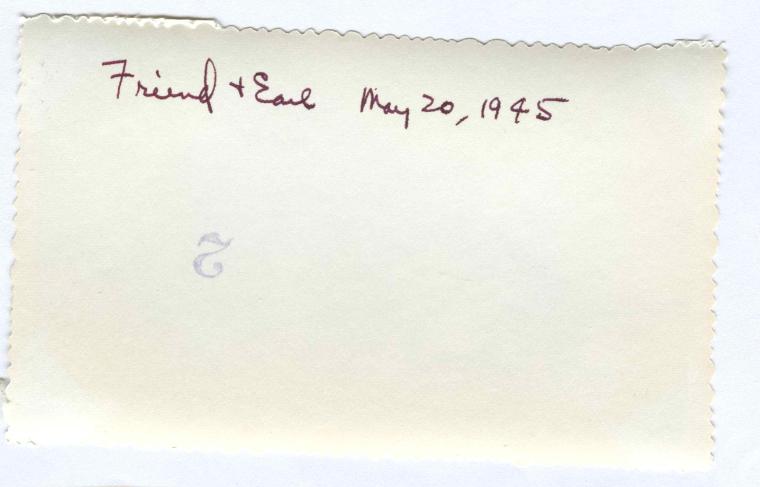 Friend + Earl May 20, 1945
2